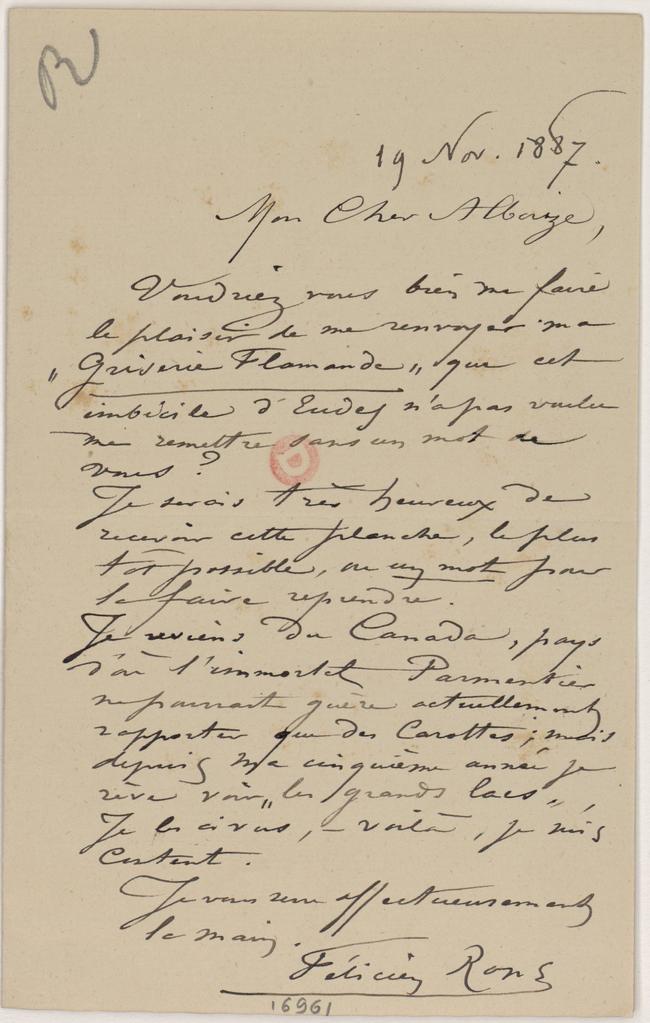 R
19 Nov. 1887.
Mon Cher Alboize,
Voudriez vous bien me faire
le plaisir de me renvoyer ma
„Griserie Flamande„ que cet
imbécile d'Eudes n'a pas voulu
me remettre sans un mot de
vous ?
Je serais très heureux de
recevoir cette planche, le plus
tôt possible, ou un mot pour
la faire reprendre.
Je reviens du Canada, pays
d'où l'immortel Parmentier
ne pourrait guère actuellement
rapporter que des Carottes ; mais
depuis ma cinquième année je
rêve voir „les grands lacs„,
Je les ai vus, – voilà, je suis
content.
Je vous serre affectueusement
la main.
Félicien Rops
16961